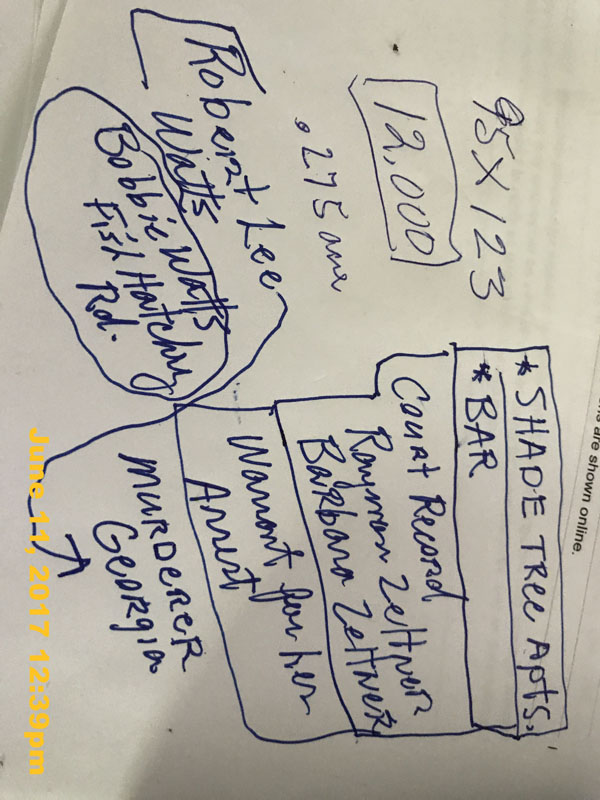 95 X 123
12,000
.275 acre
Robert Lee
Watts
Bobbie Watts
Fish Hatchery
Rd.
ns are shown online.
* SHADE TREE Apts.
* BAR
Court Record
Rayman Zeltner
Barbara Zeltner
Warrant for her
Arrest
MURDERER
GEORGIA
June 11, 2017 12:39pm